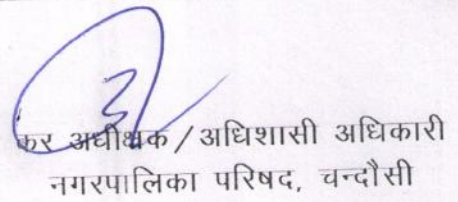 कर अधीक्षक / अधिशासी अधिकारी
नगरपालिका परिषद, चन्दौसी